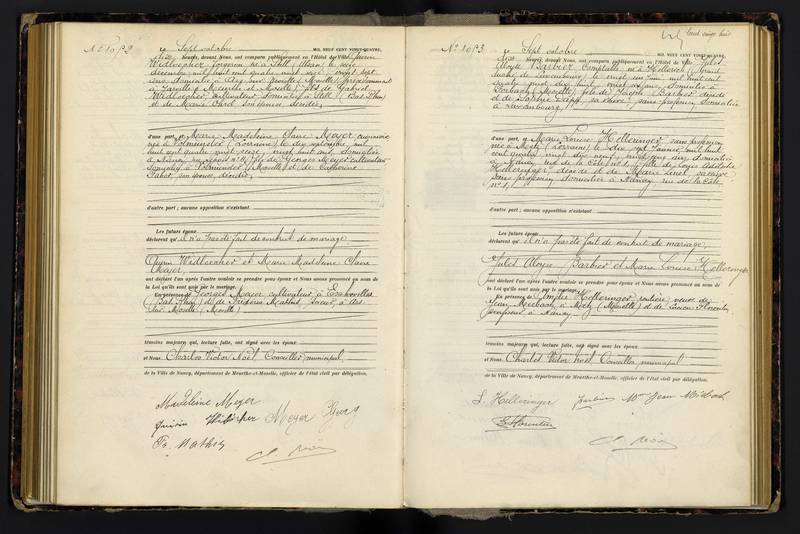 N° 1092
Le Sept octobre MIL NEUF CENT VINGT-QUATRE,
heures, devant Nous, ont comparu publiquement en l'Hôtel de Ville Quirin
Widloecher, forgeron né à Still (Alsace) le seize
décembre mil huit cent quatre vingt seize, vingt sept
ans, domicilié à Ars sur Moselle (Moselle), précédemment
à Jarville, fils de
Widloecher, cultivateur domicilié à Still (Bas Rhin)
et de Marie son épouse, décédée,
d'une part, et Marie Madeleine Claire Meyer, cuisinière
née à Volmunster (Lorraine) le dix septembre, mil
huit cent quatre vingt seize, vingt huit ans, domiciliée
à Nancy, fille de Georges Meyer cultivateur
domicilié à Volmunster (Moselle) et de Catherine
son épouse, décédée,
d'autre part ; aucune opposition n'existant.
Les futurs époux
déclarent qu'il n'a pas été fait de contrat de mariage,
Quirin Widloecher et Marie Madeleine Claire
Meyer,
ont déclaré l'un après l'autre vouloir se prendre pour époux et Nous avons prononcé au nom de
la Loi qu'ils sont unis par le mariage.
En présence de Georges Meyer, cultivateur à
(Bas Rhin) et de Frédéric Mathis, à Ars
sur Moselle (Moselle)
témoins majeurs, qui, lecture faite, ont signé avec les époux
et Nous, Charles Victor Noël Conseiller municipal
de la Ville de Nancy, département de Meurthe-et-Moselle, officier de l'état civil par délégation.
Madeleine Meyer
Quirin Widlöcher Meyer Georg
Fr. Mathis
N° 1093
Le Sept octobre MIL NEUF CENT VINGT-QUATRE,
heures, devant Nous, ont comparu publiquement en l'Hôtel de Ville Jules
Aloyse Barbier, Comptable, né à Hollerich (Grand
duché de Luxembourg) le vingt un juin mil huit cent
ans, domicilié à
Forbach (Moselle), fils de Joseph Barbier décédé
et de sa veuve, sans profession, domiciliée
à Luxembourg,
d'une part, et Marie Louise Helleringer, sans profession,
née à Metz (Lorraine) le dix sept janvier, mil huit
cent quatre vingt dix neuf, vingt cinq ans, domiciliée
à Nancy, rue de la Côte n° 1, fille de Louis Adolphe
Helleringer, décédé et de Marie sa veuve
sans profession, domiciliée à Nancy, rue de la Côte,
n° 1,
d'autre part ; aucune opposition n'existant.
Les futurs époux
déclarent qu'il n'a pas été fait de contrat de mariage,
Jules Aloyse Barbier et Marie Louise Helleringer
ont déclaré l'un après l'autre vouloir se prendre pour époux et Nous avons prononcé au nom de
la Loi qu'ils sont unis par le mariage.
En présence de Helleringer rentière, veuve de
Jean à Metz (Moselle) et de Lucien Florentin,
professeur à Nancy,
témoins majeurs, qui, lecture faite, ont signé avec les époux
et Nous, Charles Victor Noël Conseiller municipal
de la Ville de Nancy, département de Meurthe-et-Moselle, officier de l'état civil par délégation.
L. Helleringer Barbier Vve Jean
Florentin